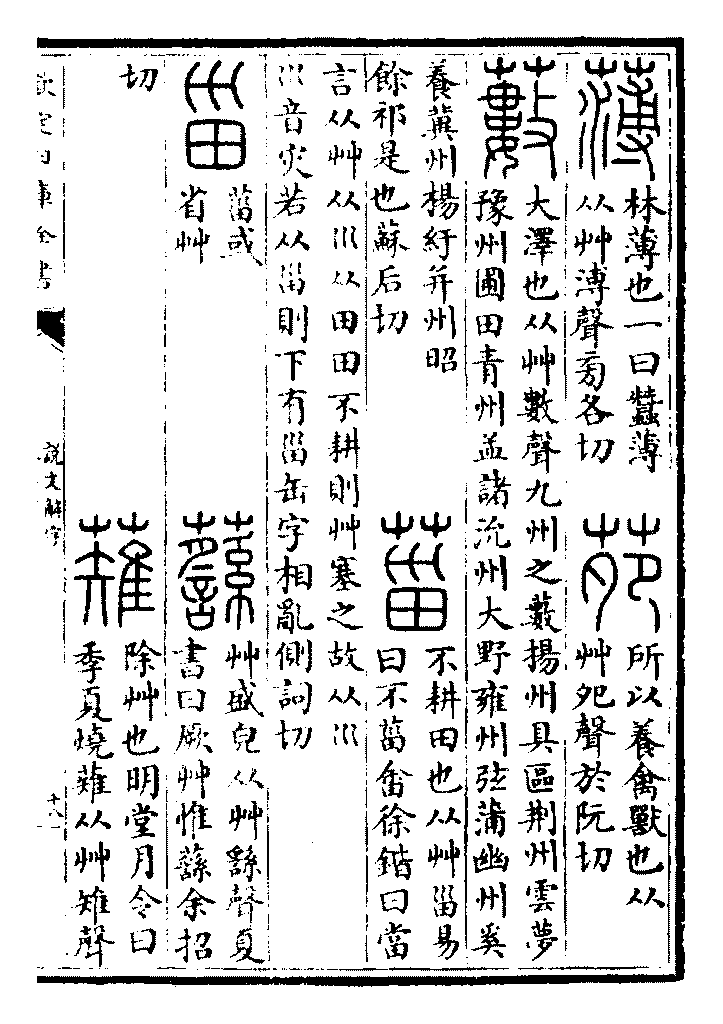 薄
林薄也一曰蠶薄
从艸溥聲㫄各切
苑
所以養禽獸也从
艸夗聲於阮切
藪
大澤也从艸數聲九州之藪揚州具區荆州雲夢
豫州圃田青州孟諸沇州大野雍州弦蒲幽州奚
養冀州楊紆并州昭
餘祁是也蘇后切
菑
不耕田也从艸甾易
曰不菑畬徐鍇曰當
言从艸从巛从田田不耕則艸塞之故从巛
巛音灾若从甾則下有甾缶字相亂側詞切
甾
菑或
省艸
蘨
艸盛皃从艸繇聲夏
書曰厥艸惟蘨余招
切
薙
除艸也明堂月令曰
季夏燒薙从艸雉聲
欽定四庫全書
說文解字
十八